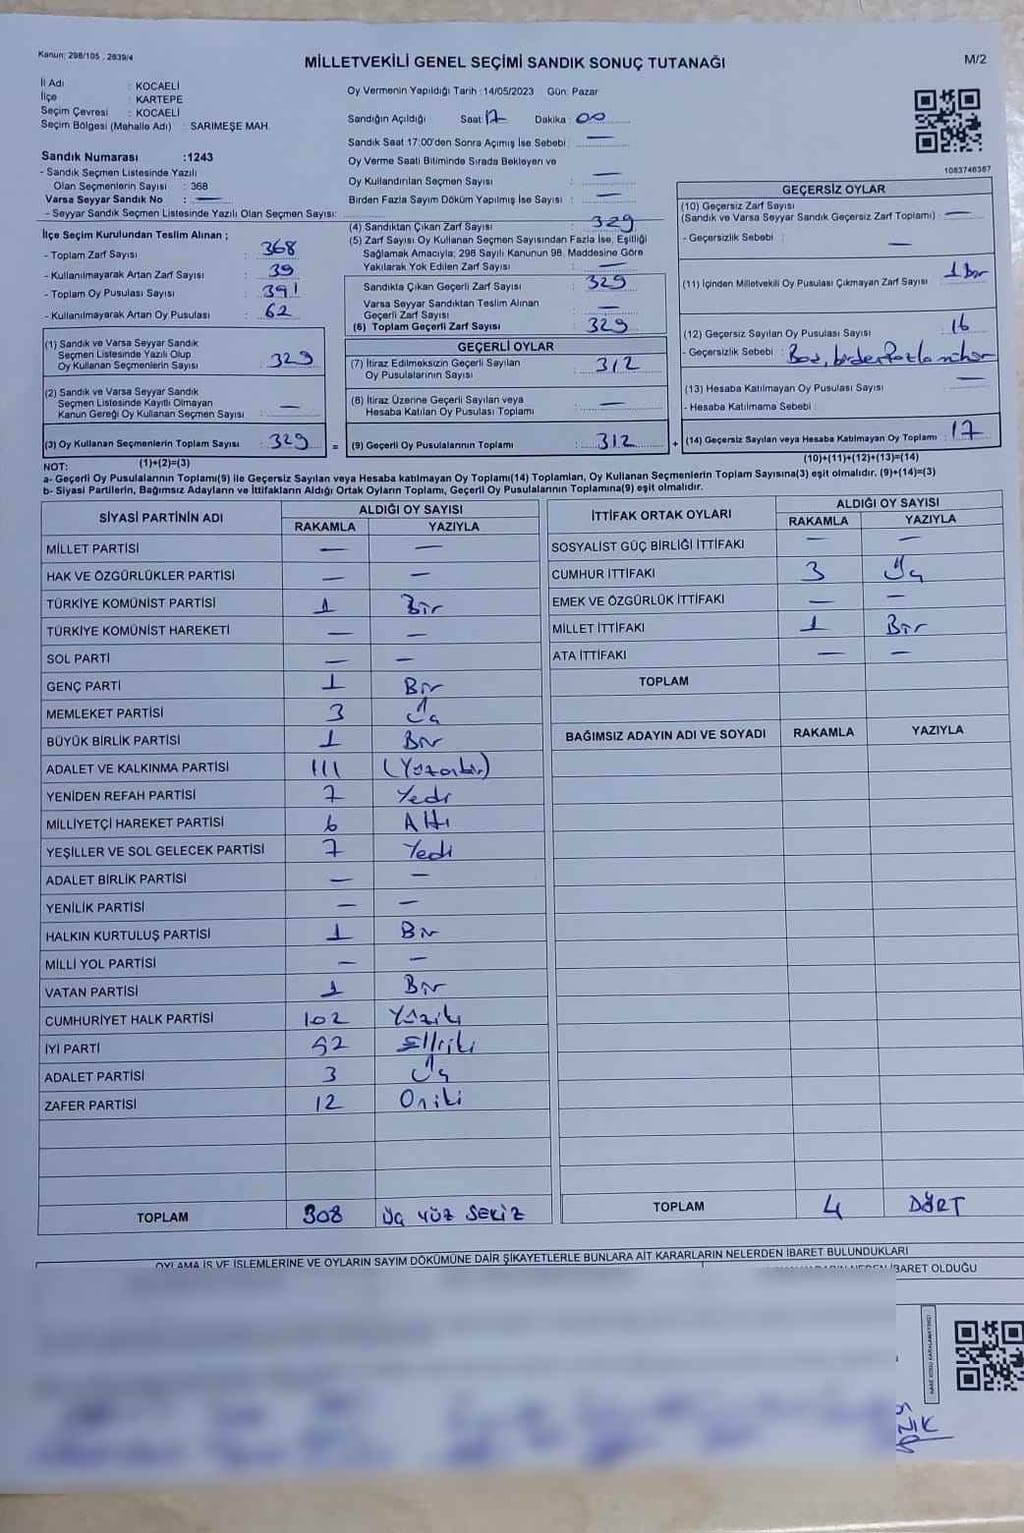 Kanun: 298/105 , 2839/4
MİLLETVEKİLİ GENEL SEÇİMİ SANDIK SONUÇ TUTANAĞI
M/2
İl Adı : KOCAELİ
İlçe : KARTEPE
Seçim Çevresi : KOCAELİ
Seçim Bölgesi (Mahalle Adı) : SARIMEŞE MAH.
Sandık Numarası :1243
- Sandık Seçmen Listesinde Yazılı
Olan Seçmenlerin Sayısı : 368
Varsa Seyyar Sandık No : —
- Seyyar Sandık Seçmen Listesinde Yazılı Olan Seçmen Sayısı:
İlçe Seçim Kurulundan Teslim Alınan ;
- Toplam Zarf Sayısı : 368
- Kullanılmayarak Artan Zarf Sayısı : 39
- Toplam Oy Pusulası Sayısı : 391
- Kullanılmayarak Artan Oy Pusulası : 62
(1) Sandık ve Varsa Seyyar Sandık
Seçmen Listesinde Yazılı Olup
Oy Kullanan Seçmenlerin Sayısı : 329
(2) Sandık ve Varsa Seyyar Sandık
Seçmen Listesinde Kayıtlı Olmayan
Kanun Gereği Oy Kullanan Seçmen Sayısı : —
(3) Oy Kullanan Seçmenlerin Toplam Sayısı : 329 =
Oy Vermenin Yapıldığı Tarih :14/05/2023 Gün: Pazar
Sandığın Açıldığı Saat: 17 Dakika : 00
Sandık Saat 17:00'den Sonra Açımış İse Sebebi : —
Oy Verme Saati Bitiminde Sırada Bekleyen ve
Oy Kullandırılan Seçmen Sayısı : —
Birden Fazla Sayım Döküm Yapılmış İse Sayısı : —
(4) Sandıktan Çıkan Zarf Sayısı : 329
(5) Zarf Sayısı Oy Kullanan Seçmen Sayısından Fazla İse, Eşitliği
Sağlamak Amacıyla; 298 Sayılı Kanunun 98. Maddesine Göre
Yakılarak Yok Edilen Zarf Sayısı : —
Sandıkla Çıkan Geçerli Zarf Sayısı : 329
Varsa Seyyar Sandıktan Teslim Alınan
Geçerli Zarf Sayısı : —
(6) Toplam Geçerli Zarf Sayısı : 329
GEÇERLİ OYLAR
(7) İtiraz Edilmeksizin Geçerli Sayılan
Oy Pusulalarının Sayısı : 312
(8) İtiraz Üzerine Geçerli Sayılan veya
Hesaba Katılan Oy Pusulası Toplamı : —
(9) Geçerli Oy Pusulalarının Toplamı : 312 +
1083746387
GEÇERSİZ OYLAR
(10) Geçersiz Zarf Sayısı
(Sandık ve Varsa Seyyar Sandık Geçersiz Zarf Toplamı) : —
- Geçersizlik Sebebi : —
(11) İçinden Milletvekili Oy Pusulası Çıkmayan Zarf Sayısı : 1 Bir
(12) Geçersiz Sayılan Oy Pusulası Sayısı : 16
- Geçersizlik Sebebi : Boş, birden fazla mühür
(13) Hesaba Katılmayan Oy Pusulası Sayısı : —
- Hesaba Katılmama Sebebi :
(14) Geçersiz Sayılan veya Hesaba Katılmayan Oy Toplamı : 17
NOT: (1)+(2)=(3) (10)+(11)+(12)+(13)=(14)
a- Geçerli Oy Pusulalarının Toplamı(9) ile Geçersiz Sayılan veya Hesaba katılmayan Oy Toplamı(14) Toplamları, Oy Kullanan Seçmenlerin Toplam Sayısına(3) eşit olmalıdır. (9)+(14)=(3)
b- Siyasi Partilerin, Bağımsız Adayların ve İttifakların Aldığı Ortak Oyların Toplamı, Geçerli Oy Pusulalarının Toplamına(9) eşit olmalıdır.
SİYASİ PARTİNİN ADI ALDIĞI OY SAYISI
RAKAMLA YAZIYLA
MİLLET PARTİSİ — —
HAK VE ÖZGÜRLÜKLER PARTİSİ — —
TÜRKİYE KOMÜNİST PARTİSİ 1 Bir
TÜRKİYE KOMÜNİST HAREKETİ — —
SOL PARTİ — —
GENÇ PARTİ 1 Bir
MEMLEKET PARTİSİ 3 Üç
BÜYÜK BİRLİK PARTİSİ 1 Bir
ADALET VE KALKINMA PARTİSİ 111 (Yüzonbir)
YENİDEN REFAH PARTİSİ 7 Yedi
MİLLİYETÇİ HAREKET PARTİSİ 6 Altı
YEŞİLLER VE SOL GELECEK PARTİSİ 7 Yedi
ADALET BİRLİK PARTİSİ — —
YENİLİK PARTİSİ — —
HALKIN KURTULUŞ PARTİSİ 1 Bir
MİLLİ YOL PARTİSİ — —
VATAN PARTİSİ 1 Bir
CUMHURİYET HALK PARTİSİ 102 Yüziki
İYİ PARTİ 52 Elliiki
ADALET PARTİSİ 3 Üç
ZAFER PARTİSİ 12 Oniki
TOPLAM 308 ÜÇ YÜZ SEKİZ
İTTİFAK ORTAK OYLARI ALDIĞI OY SAYISI
RAKAMLA YAZIYLA
SOSYALİST GÜÇ BİRLİĞİ İTTİFAKI — —
CUMHUR İTTİFAKI 3 Üç
EMEK VE ÖZGÜRLÜK İTTİFAKI — —
MİLLET İTTİFAKI 1 Bir
ATA İTTİFAKI — —
TOPLAM
BAĞIMSIZ ADAYIN ADI VE SOYADI RAKAMLA YAZIYLA
TOPLAM 4 DÖRT
OYLAMA İŞ VE İŞLEMLERİNE VE OYLARIN SAYIM DÖKÜMÜNE DAİR ŞİKAYETLERLE BUNLARA AİT KARARLARIN NELERDEN İBARET BULUNDUKLARI
İBARET OLDUĞU